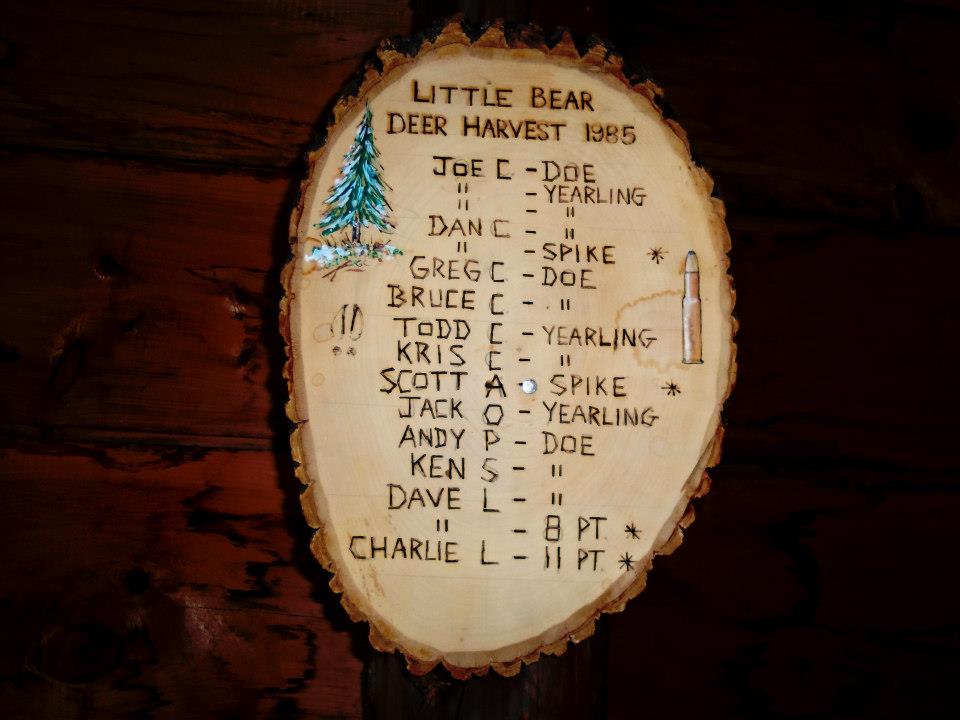 LITTLE BEAR
DEER HARVEST 1985
JOE C - DOE
" - YEARLING
" - "
DAN C - "
" - SPIKE *
GREG C - DOE
BRUCE C - "
TODD C - YEARLING
KRIS C - "
SCOTT A - SPIKE *
JACK O - YEARLING
ANDY P - DOE
KEN S - "
DAVE L - "
" - 8 PT. *
CHARLIE L - 11 PT. *